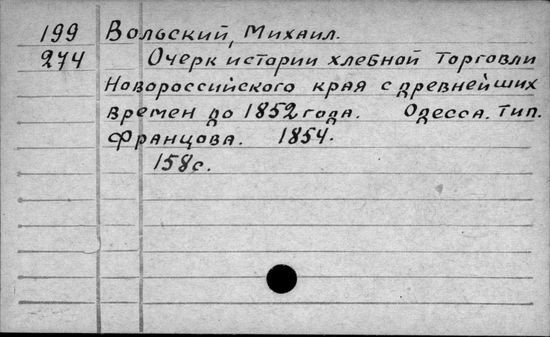 199 Вольский, Михаил.
274 Очерк истории хлебной торговли
Новороссийского края с древнейших
времен до 1852 года. Одесса. Тип.
Францова. 1854.
158 с.